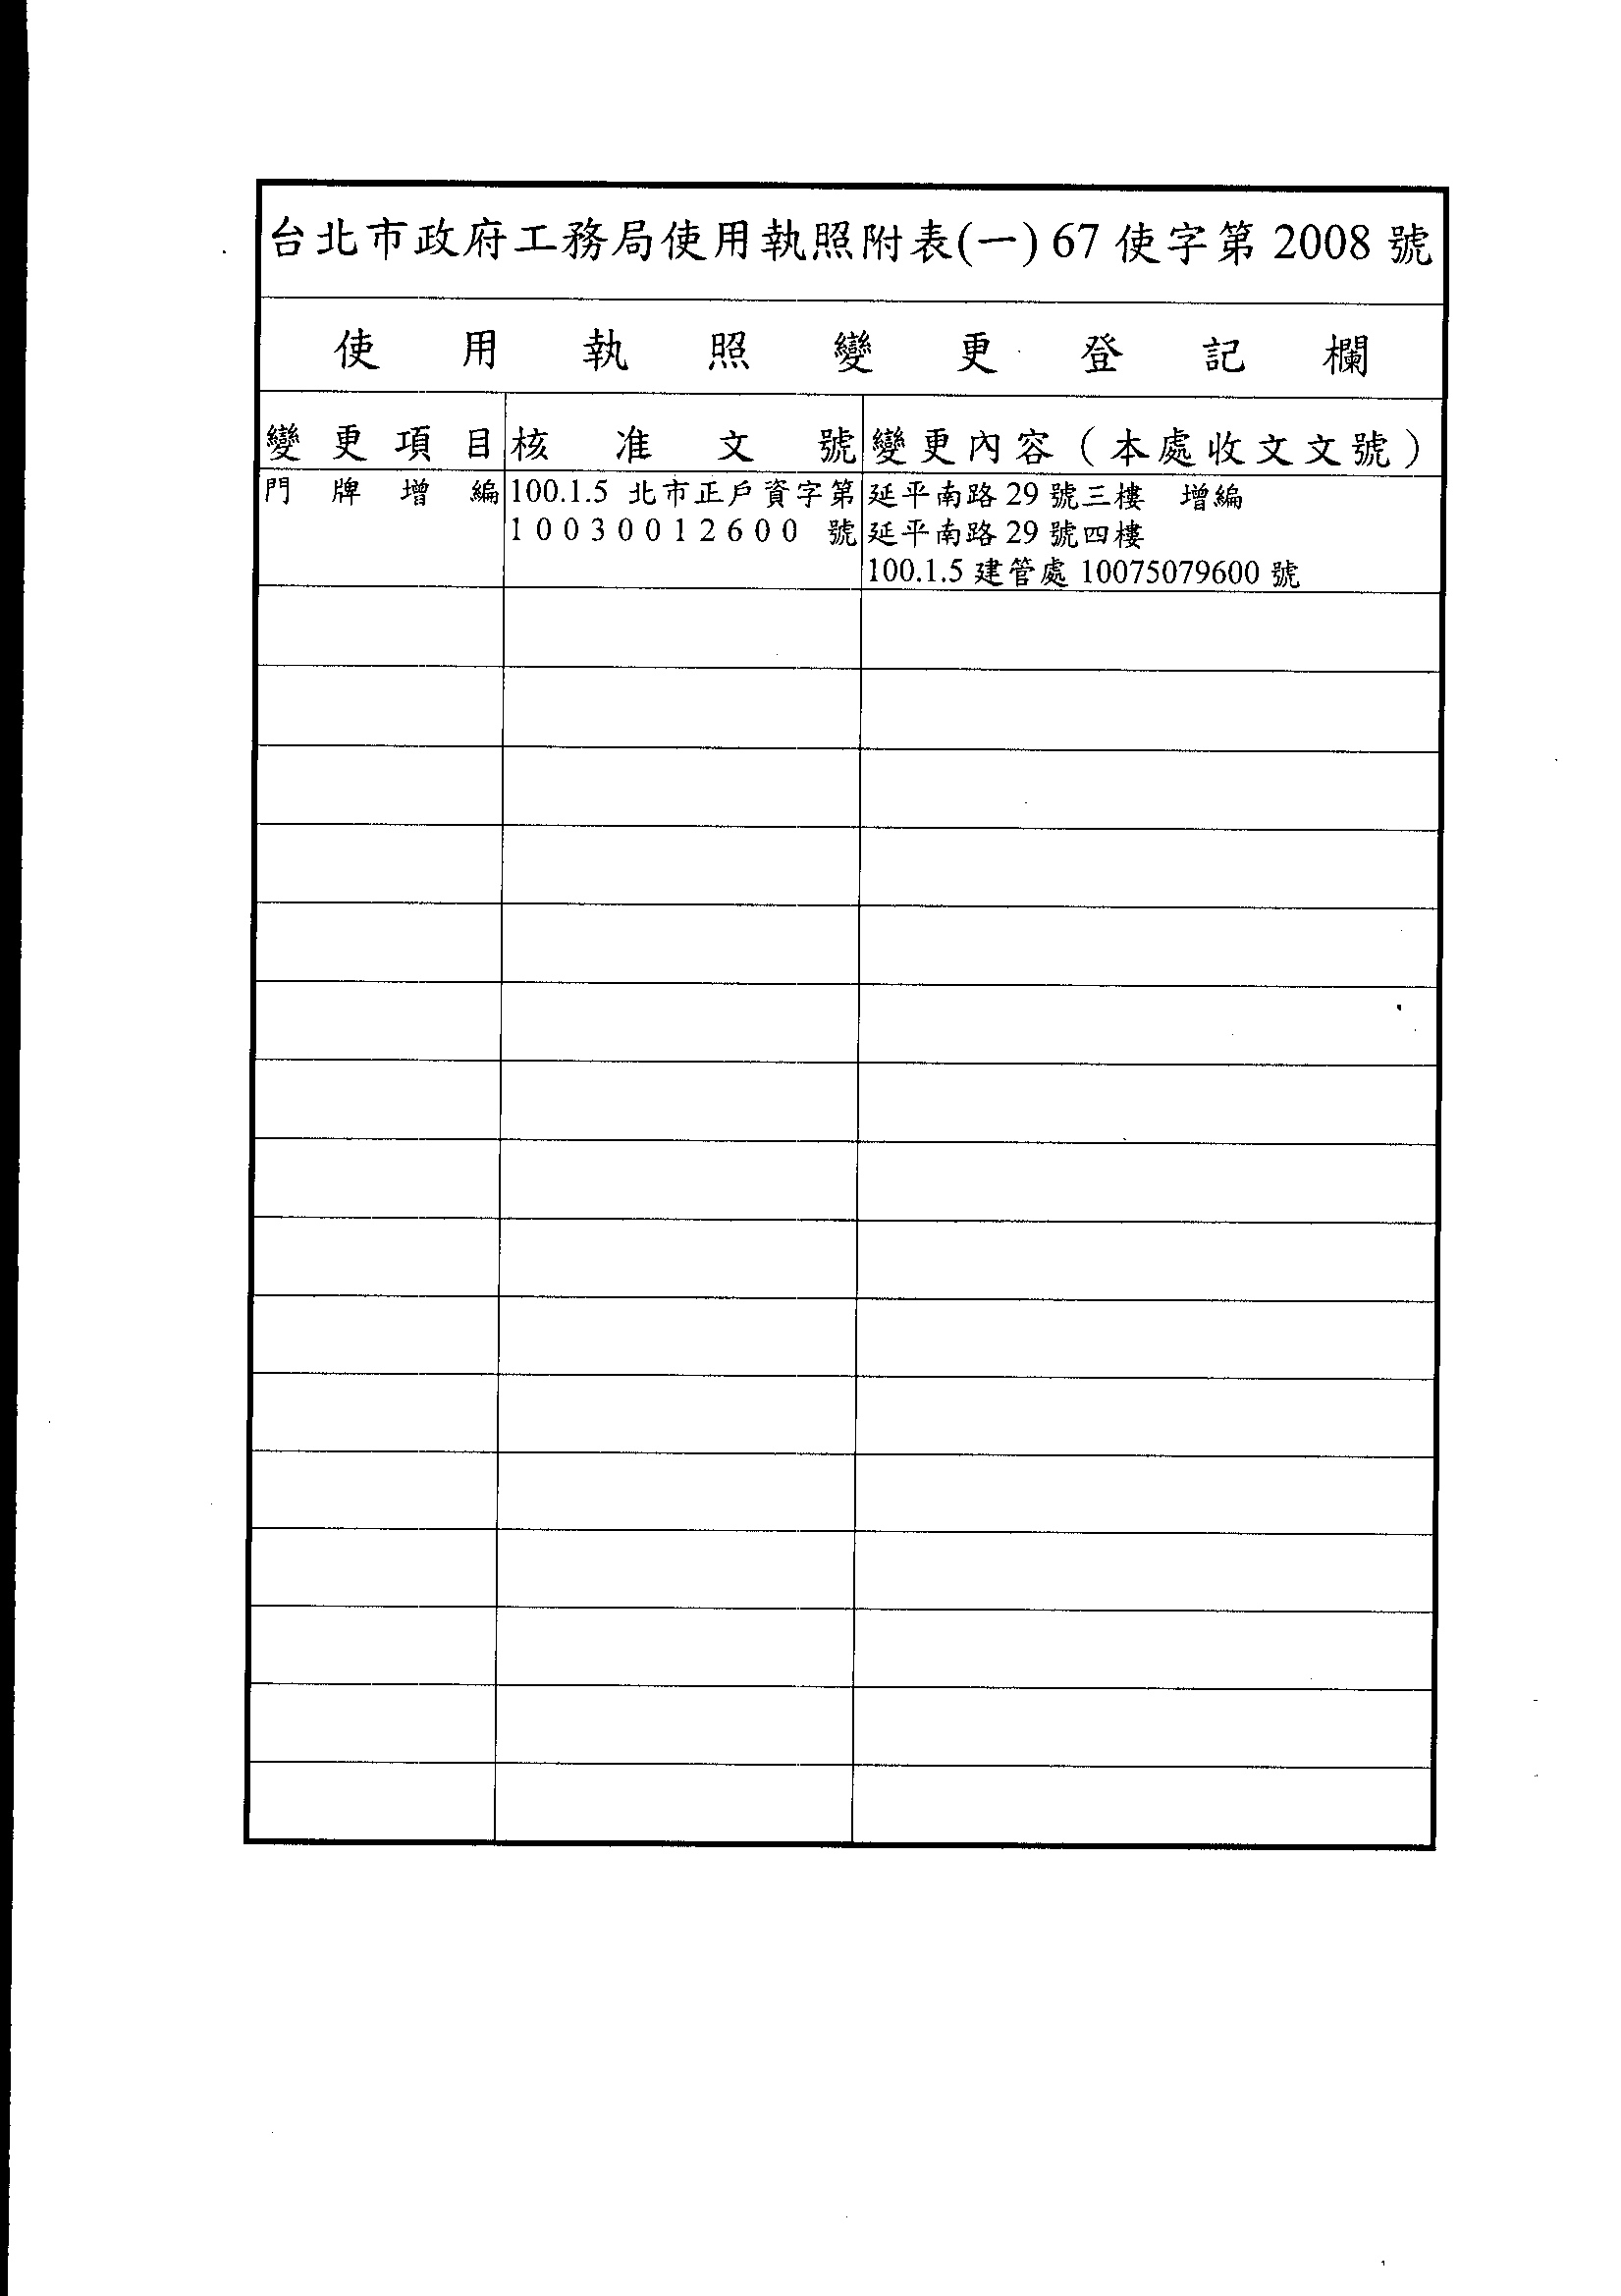 台北市政府工務局使用執照附表(一) 67 使字第 2008 號
使用執照變更登記欄
變更項目 核准文號 變更內容（本處收文文號）
門牌增編 100.1.5 北市正戶資字第 延平南路 29 號三樓 增編
10030012600 號 延平南路 29 號四樓
100.1.5 建管處 10075079600 號